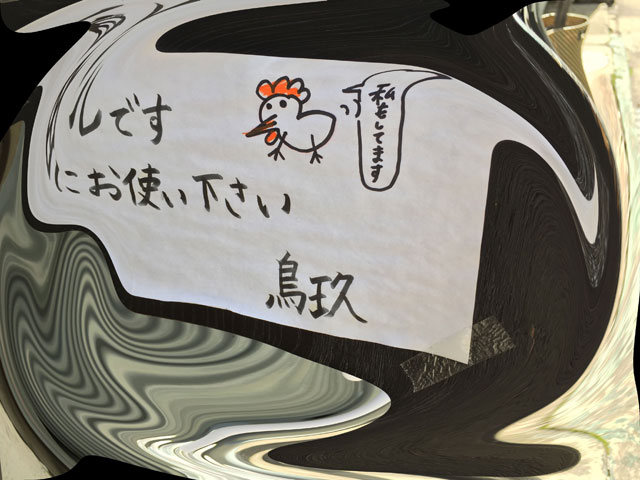 ルです
にお使い下さい
鳥玖
私もしてます